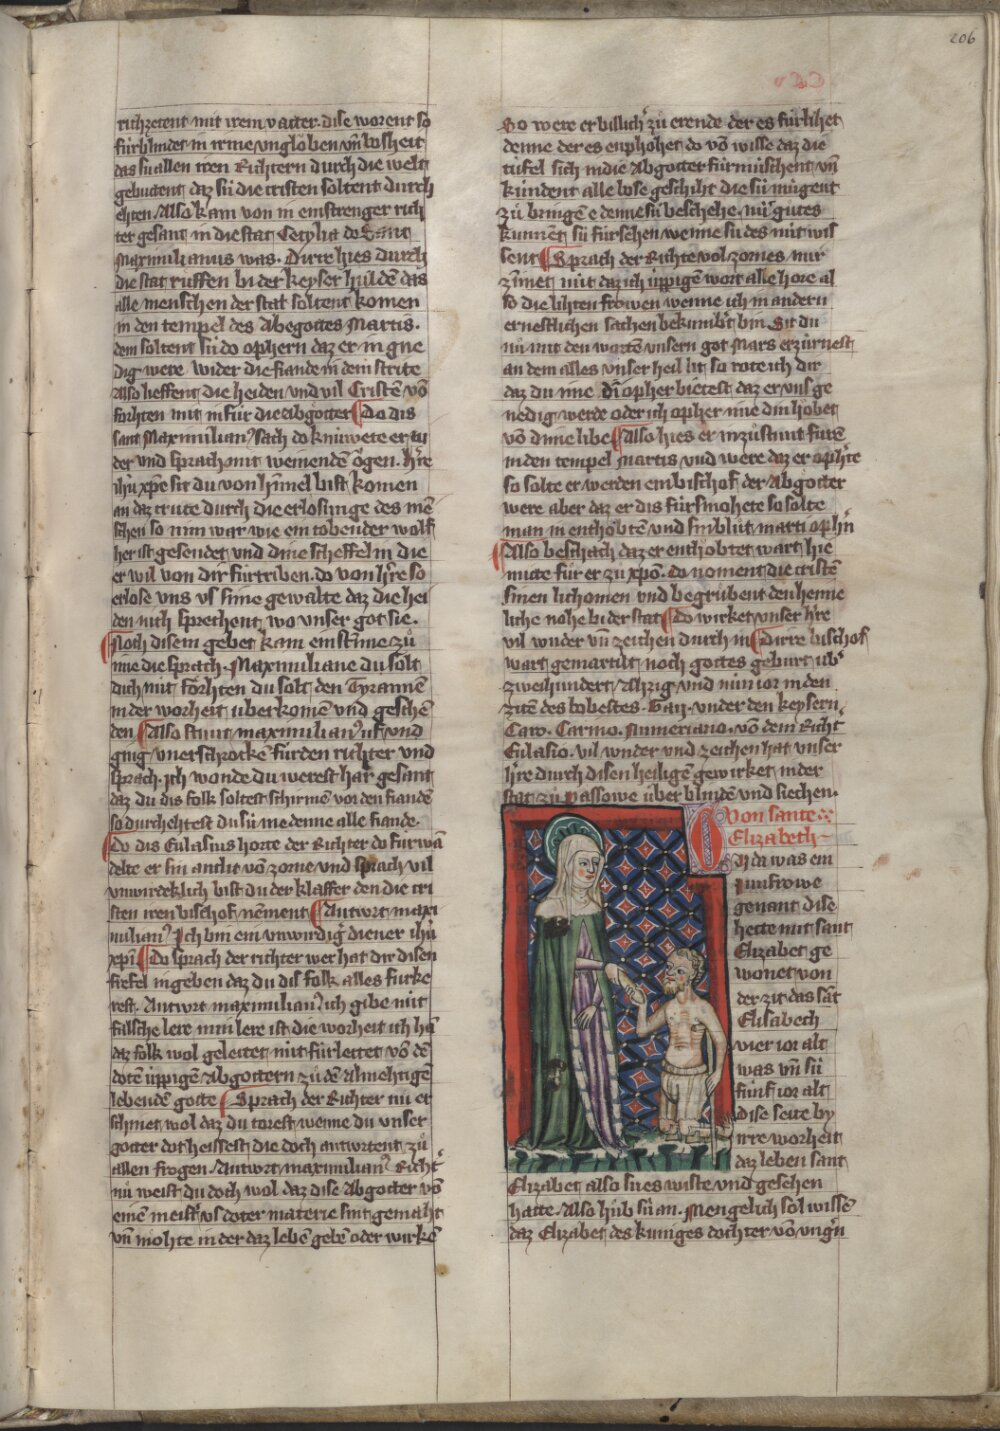 206
richzetent mit irem vatter. dise worent so
fürblindet in irme unglöben vn̄ bosheit
das sü allen iren Richtern durch die welt
gebuttent, daz sü die cristen soltent durch
ehten. Also kam von in ein strenger rich
ter gesant in die stat Cecylia do Sant
Maximilianus was. Dirre hies durch
die stat rüffen bi der keyser hulden das
alle menschen der stat soltent komen
in den tempel des Abegottes Martis.
dem soltent sü do ophern daz er in gne
dig were wider die fiande in dem strite
Also lieffent die heiden und vil Cristē vō
forhten mit in für die abgötter Do dis
sant Maximilianꝰ sach do knüwete er ni
der und sprach mit weinendē ögen. h're
ihū xpē sit du von himel bist komen
an daz ertrich durch die erlosunge des mē
schen so nim war wie ein tobender wolf
her ist gesendet, und dine scheffelin die
er wil von dir fürtriben. do von h're so
erlose uns us sime gewalte daz die hei
den nüt sprechent, wo unser got sie.
Noch disem gebet kam ein stime zů
ime die sprach. Maximiliane du solt
dich nüt förhten du solt den Tyrannē
in der worheit überkomē und geschē
den. Also stunt maximilianꝰ uf und
ging unerschrockē für den richter und
sprach. Ich wonde du werest har gesant
daz du dis folk soltest schirmē vor den fiandē
so durchehtest du sü me denne alle fiande.
Do dis Eulasius horte der Richter do fürwā
delte er sin antlit vō zorne und sprach vil
unwirdeklich bist du der klaffer den die cri
sten iren bischof nēment Antwrt maxi
milianꝰ Ich bin ein unwirdig' diener ihū
xpi Do sprach der richter wer hat dir disen
frefel ingeben daz du dis folk alles fürke
rest. Antwrt maximilianꝰ ich gibe nüt
falsche lere min lere ist die worheit ich hā
daz folk wol geleitet, nüt fürleitet vō dē
dotē üppigē Abgöttern zů dē Almehtigē
lebendē gotte Sprach der Richter nu er
schinet wol daz du torest wenne du unser
götter dot heissest die doch antwrtent zů
allen frogen. Antwrt maximilianꝰ Richt'
nů weist du doch wol daz dise Abgötter vō
einē meist' us doter materie sint gemaht
vn̄ möhte in der daz lebē gebē oder wirkē
So were er billich' zů erende der es fürlihet
denne der es enphohet, do vō wisse daz die
tüfel sich in die Abgötter fürmischent vn̄
kündent alle böse geschiht die sü mügent
zů bringē e denne sü beschehe. nüt gutes
kunnēt sü fürsehen wenne sü des nüt wis
sent Sprach der Richter vol zornes, mir
zimet nüt daz ich üppigē wort alle höre al
so die lihten frowen wenne ich in andern
ernestlichen sachen bekumb't bin. Sit du
nů mit den wortē unsern got Mars erzürnest
an dem alles unser heil lit, so rote ich dir
daz du ime din opher bietest, daz er uns ge
nedig werde oder ich opher ime din höbet
vō dime libe Also hies er in zůstunt fürē
in den tempel Martis und were daz er oph'te
so solte er werden ein bischof der Abgötter
were aber daz er dis fürsmohete so solte
man in enthöbtē und sin blůt marti oph'n
Also beschach daz er enthöbtet wart, hie
mitte für er zu xpō. do noment die cristē
sinen lichomen und begrübent den heime
liche nohe bi der stat Do wirket unser h're
vil wnder vn̄ zeichen durch in Dirre bischof
wart gemartilt noch gottes geburt üb'
zweihundert, Ahzig und nün ior in den
zitē des bobestes. Gay. under den keysern
Caro. Carino. Numeriano. vō dem Richt'
Eulasio. vil wnder und zeichen hat unser
h're durch disen heiligē gewirket in der
stat zů passowe über blindē und siechen.
Von sante
Elizabeth
Ein da was ein
Junfrowe
genant dise
hette mit sant
Elizabet ge
wonet von
der zit das sāt
Elisabeth
vier ior alt
was vn̄ sü
fünf ior alt
dise seite by
irre worheit
daz leben sant
Elizabet also sü es wiste und gesehen
hatte. Also hůb sü an. Mengelich sol wissē
daz Elizabet des kuniges dochter vō ung'n